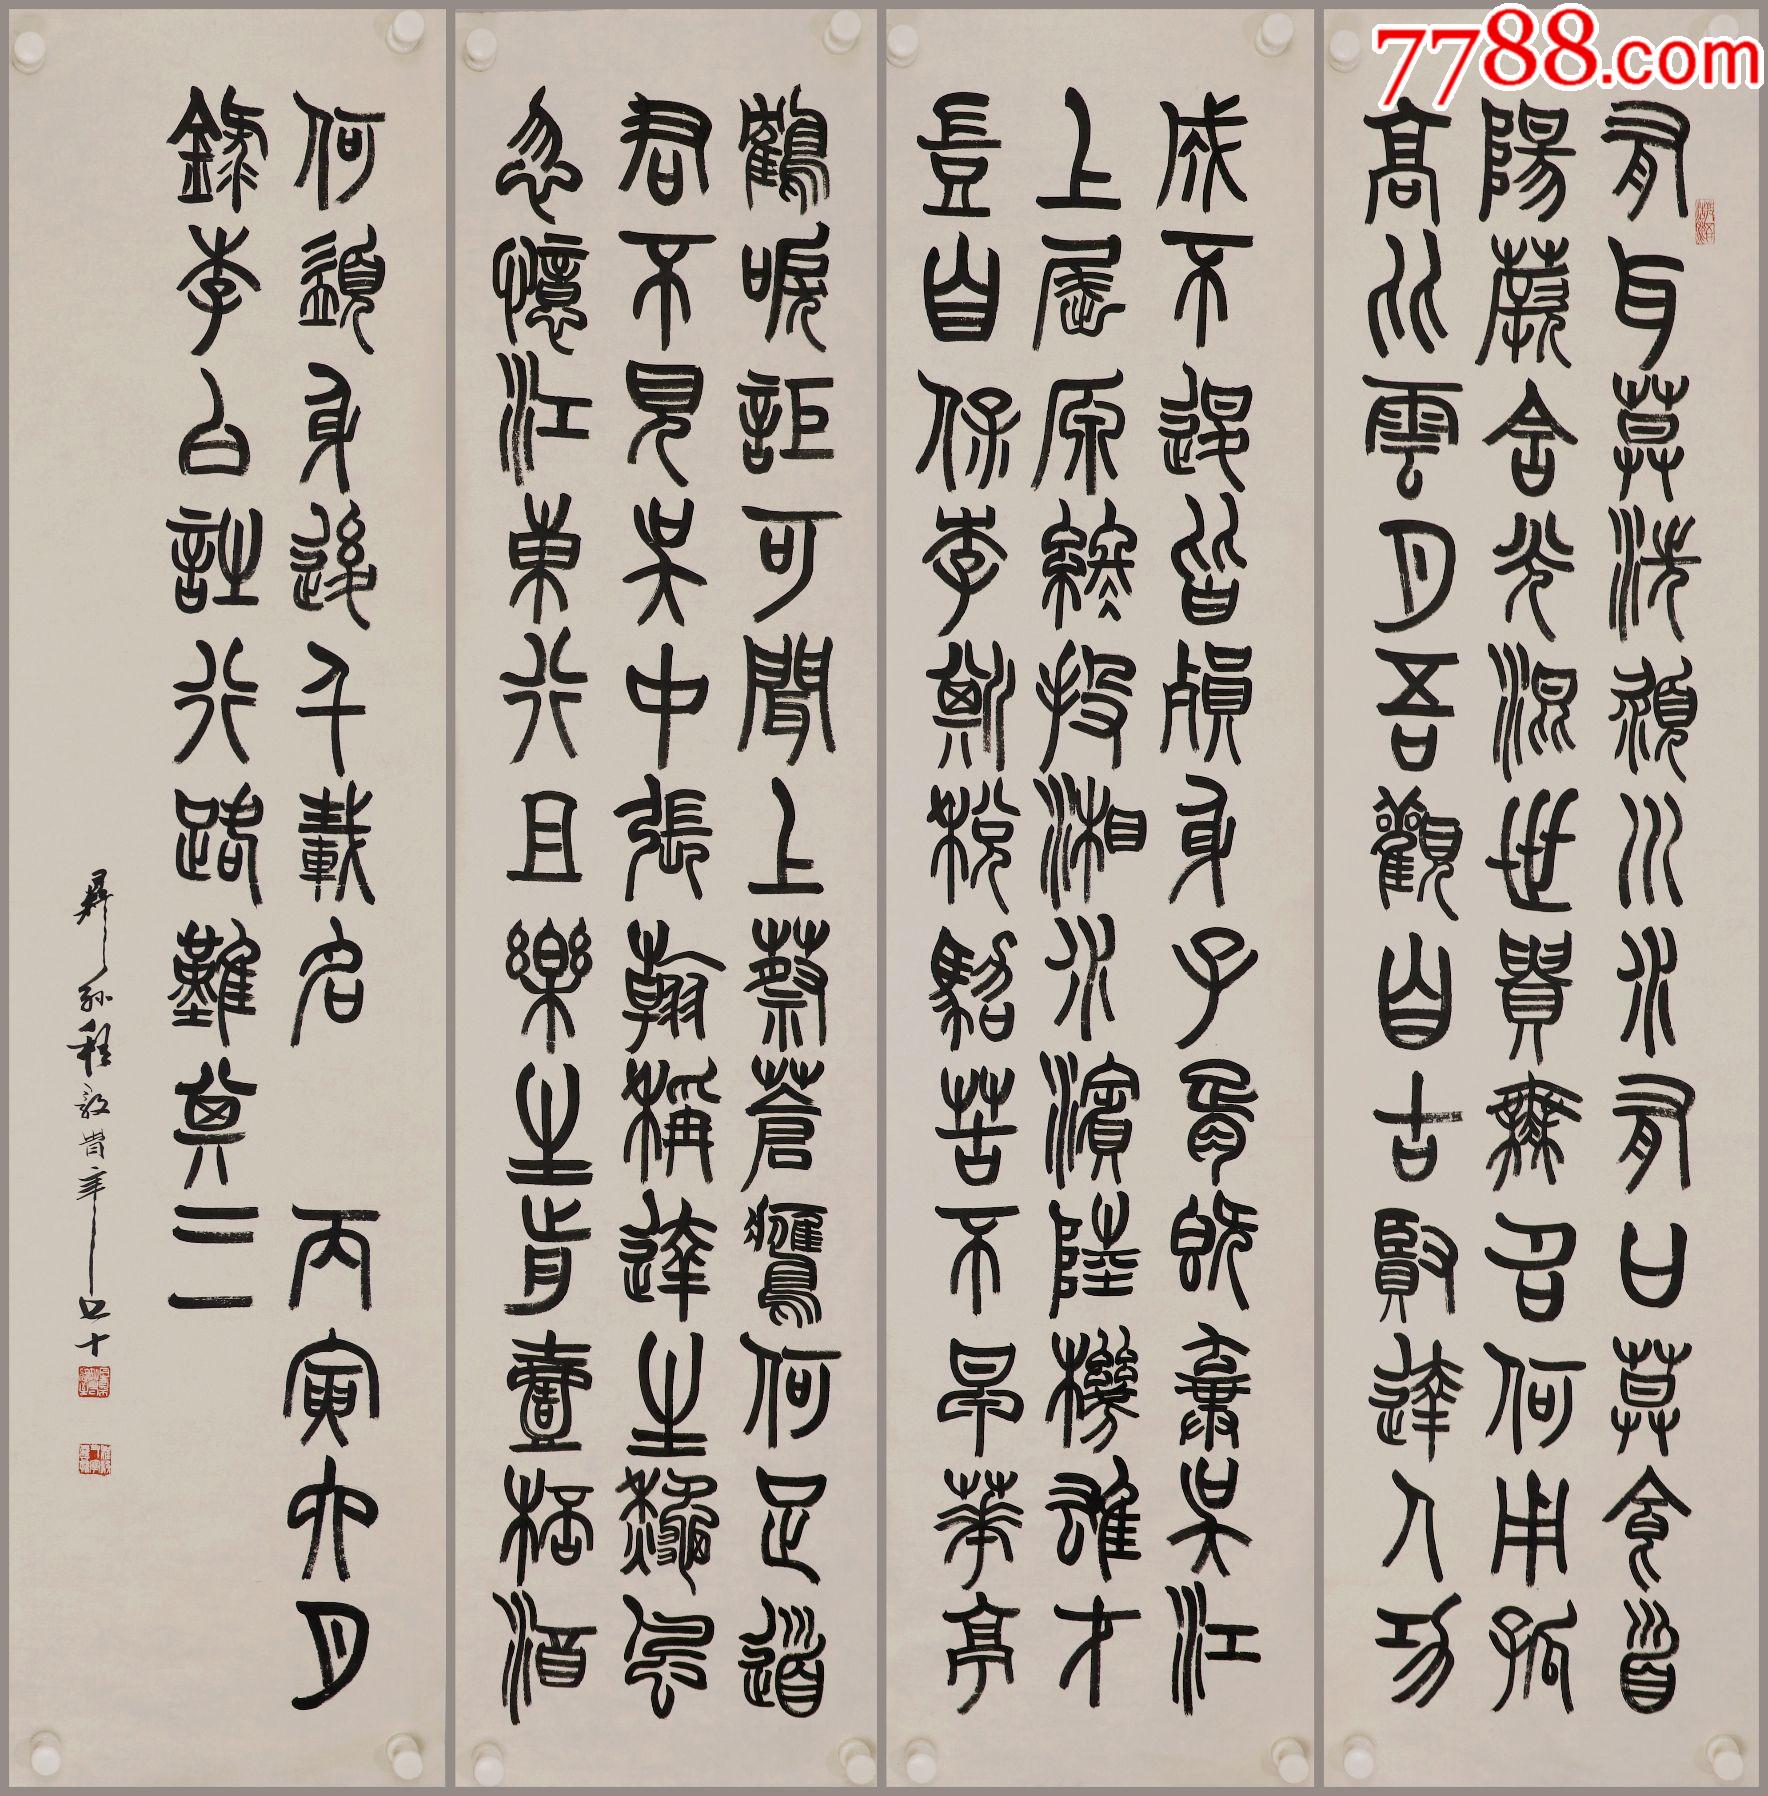 7788.com
有耳莫洗潁川水有口莫食首
陽蕨含光混世貴無名何用孤
高比雲月吾觀自古賢達人功
成不退皆殞身子胥既棄吳江
上屈原終投湘水濱陸機雄才
豈自保李斯稅駕苦不早華亭
鶴唳詎可聞上蔡蒼鷹何足道
君不見吳中張翰稱達生秋風
忽憶江東行且樂生前壹杯酒
何須身後千載名 丙寅六月
錄李白詩行路難其三